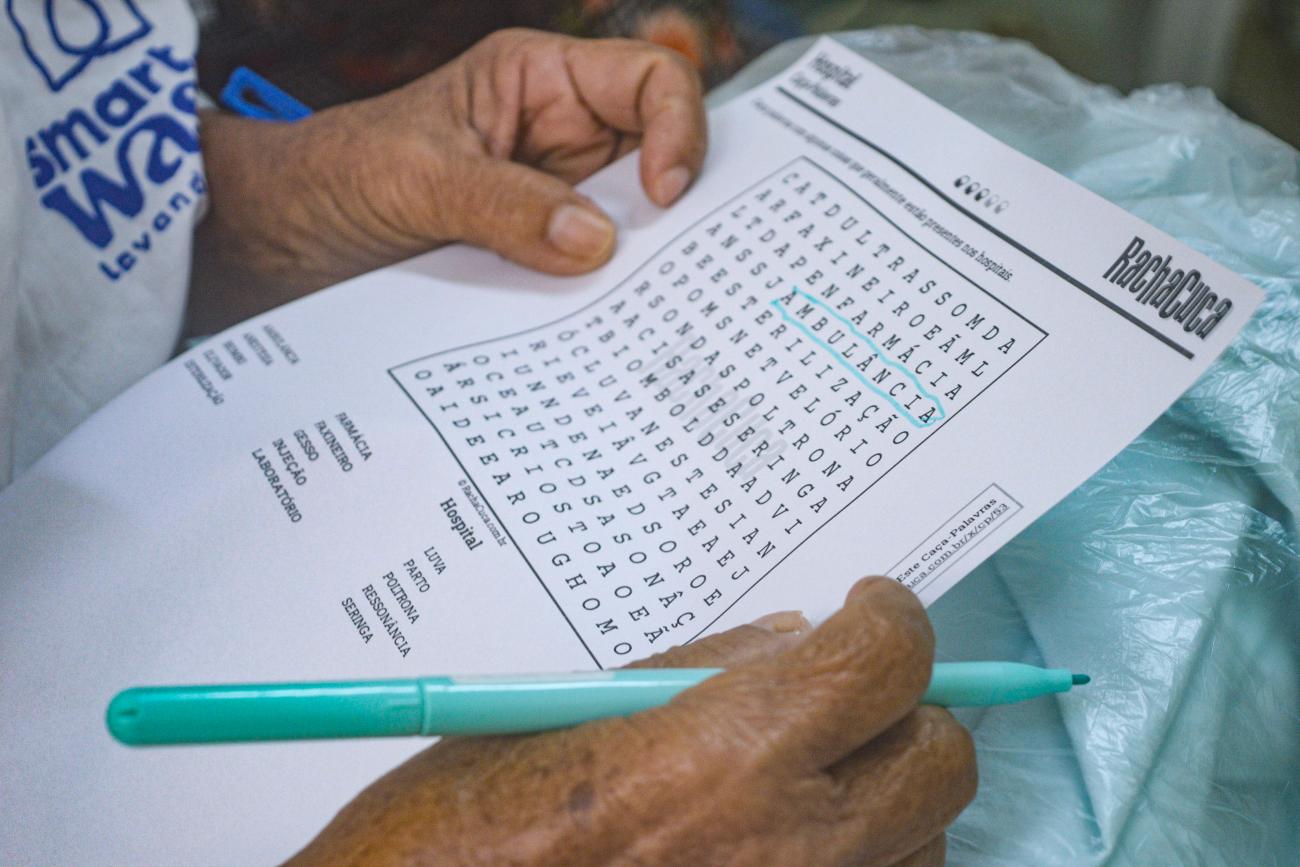 Smart
Hospital
Caça-Palavras
algumas coisas que geralmente estão presentes nos hospitais.
RachaCuca
C A T D U L T R A S S O M D A
A R F A X I N E I R O E Ã M L
L T D A P E N F A R M Á C I A
A N S S J A M B U L Â N C I A
B E E S T E R I L I Z A Ç Ã O
O P O M S N E T V E L Ó R I O
R S O N D A S P O L T R O N A
A A C I S A S E S E R I N G A
T B I O M B O L D D A A D V I
Ó C L U V A N E S T E S I A N
R I E V E I Â V G T A E A E J
I U N N D E N A E D S O R O E
O C E A U T C D S A S O N Â Ç
Á R S I C R I O S T O A O E Ã
O A I D E E A R O U G H O M O
© RachaCuca.com.br
Hospital
AMBULÂNCIA
ANESTESIA
BIOMBO
ESTERILIZAÇÃO
FARMÁCIA
FAXINEIRO
GESSO
INJEÇÃO
LABORATÓRIO
LUVA
PARTO
POLTRONA
RESSONÂNCIA
SERINGA
Este Caça-Palavras
uca.com.br/x/cp/53